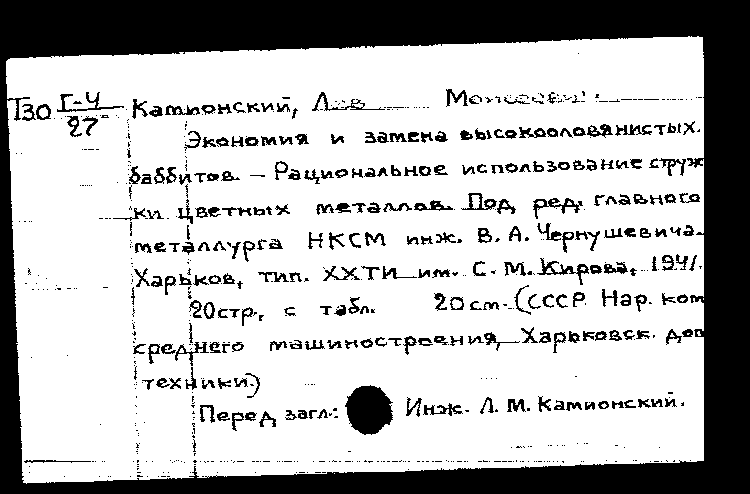 Т30 Г-4/27 Камионский, Лев Моисеевич.
Экономия и замена высокооловянистых.
баббитов. — Рациональное использование струж
ки цветных металлов. Под ред. главного
металлурга НКСМ инж. В. А. Чернушевича.
Харьков, тип. ХХТИ им. С. М. Кирова, 1941.
20стр., с табл. 20см. (СССР. Нар. ком
среднего машиностроения, Харьковск. дом
техники.)
Перед загл.: Инж. Л. М. Камионский.